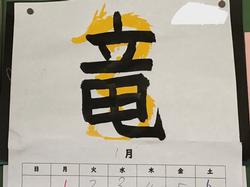 竜
1月
日 月 火 水 木 金 土
1 2 3 4 5 6